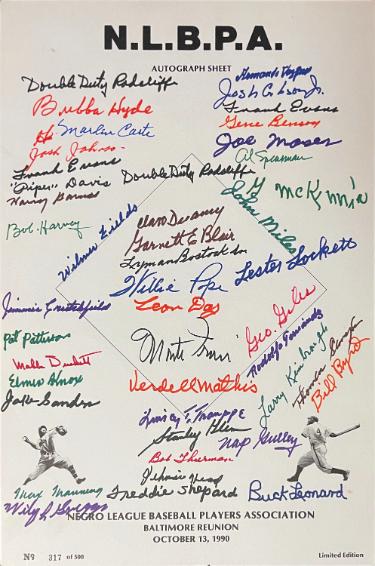 N.L.B.P.A.
AUTOGRAPH SHEET
Double Duty Radcliffe
Josh Gibson Jr.
Bubba Hyde
Frank Evans
Gene Benson
Marlin Carter
Josh Johnson
Joe Moser
Al Spearman
Frank Evans
Double Duty Radcliffe
"Piper" Davis
Harry Barnes
McKinnis
John Miles
Bob Harvey
Wilmer Fields
Garnett E Blair
Lyman Bostock Sr
Lester Lockett
Willie Pope
Jimmie Crutchfield
Leon Day
Geo. Giles
Pat Patterson
Monte Irvin
Rodolfo Fernandez
Mahlon Duckett
Larry Kimbrough
Elmer Knox
Verdell Mathis
Bill Byrd
Jake Sanders
Quincy T. Trouppe
Stanley Glenn
Nap Gulley
Bob Thurman
Max Manning
Jehosie Heard
Freddie Shepard
Buck Leonard
Wiley L Griggs
NEGRO LEAGUE BASEBALL PLAYERS ASSOCIATION
BALTIMORE REUNION
OCTOBER 13, 1990
Nº 317 of 500
Limited Edition